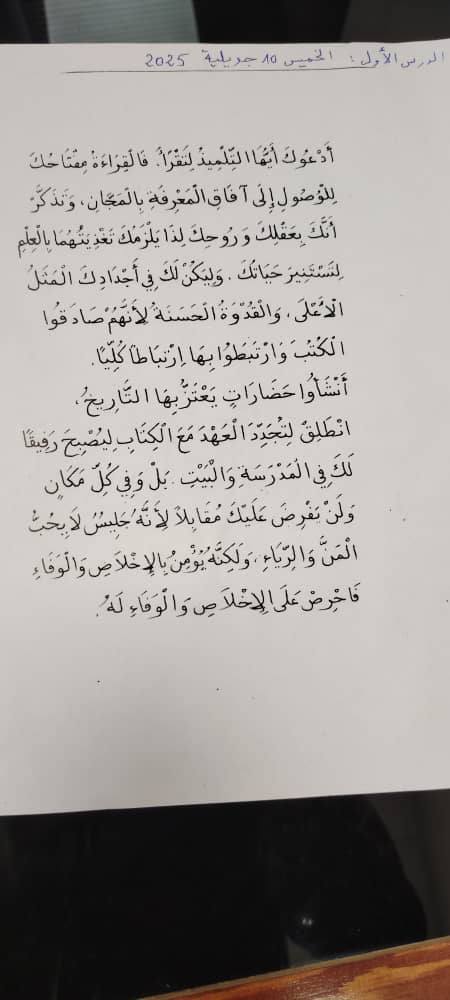 الدرس الأول : الخميس 10 جويلية 2025
أَدْعُوكَ أَيُّهَا التِّلْمِيذُ لِتَقْرَأَ. فَالْقِرَاءَةُ مِفْتَاحُكَ
لِلْوُصُولِ إِلَى آفَاقِ الْمَعْرِفَةِ بِالْمَجَّانِ، وَتَذَكَّرْ
أَنَّكَ بِعَقْلِكَ وَرُوحِكَ لِذَا يَلْزَمُكَ تَغْذِيَتُهُمَا بِالْعِلْمِ
لِتَسْتَنِيرَ حَيَاتُكَ. وَلِيَكُنْ لَكَ فِي أَجْدَادِكَ الْمَثَلُ
الْأَعْلَى، وَالْقُدْوَةُ الْحَسَنَةُ لِأَنَّهُمْ صَادَقُوا
الْكُتُبَ وَارْتَبَطُوا بِهَا اِرْتِبَاطًا كُلِّيًّا.
أَنْشَأُوا حَضَارَاتٍ يَعْتَزُّ بِهَا التَّارِيخُ،
انْطَلِقْ لِتُجَدِّدَ الْعَهْدَ مَعَ الْكِتَابِ لِيُصْبِحَ رَفِيقًا
لَكَ فِي الْمَدْرَسَةِ وَالْبَيْتِ. بَلْ وَفِي كُلِّ مَكَانٍ
وَلَنْ يَفْرِضَ عَلَيْكَ مُقَابِلاً لِأَنَّهُ جَلِيسٌ لَا يُحِبُّ
الْمَنَّ وَالرِّيَاءِ، وَلَكِنَّهُ يُؤْمِنُ بِالْإِخْلَاصِ وَالْوَفَاءِ
فَاحْرِصْ عَلَى الْإِخْلَاصِ وَالْوَفَاءِ لَهُ.